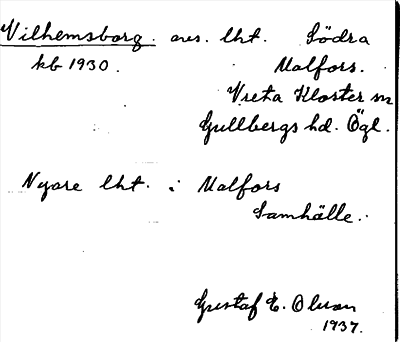 Vilhemsborg. avs. lht. Södra
kb 1930. Malfors.
Vreta Kloster sn
Gullbergs hd. Ögl.
Nyare lht. i Malfors
Samhälle.
Gustaf E. Olsson
1937.